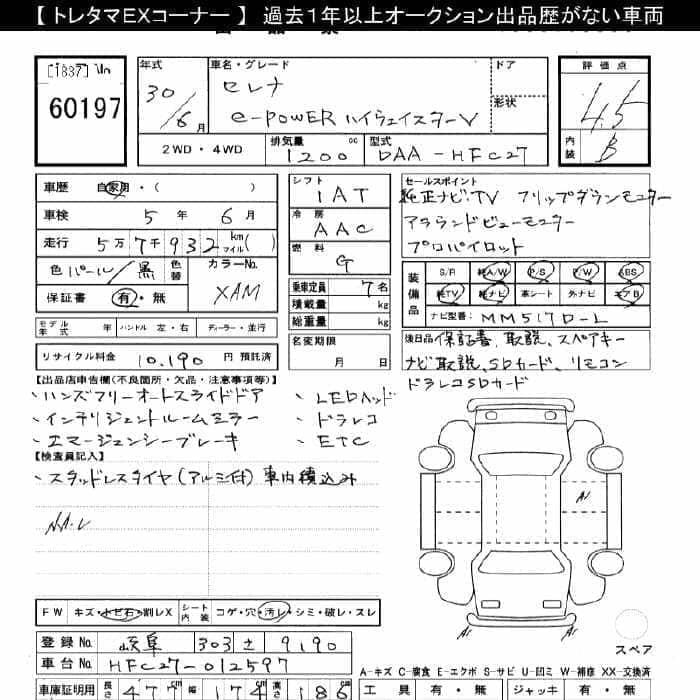 【 トレタマEXコーナー 】 過去1年以上オークション出品歴がない車両
[1887]
60197
年式 30/6月
車名・グレード セレナ
e-POWER ハイウェイスターV
ドア
形状
評価点 4.5
内装 B
2WD・4WD
排気量 1200 cc
型式 DAA-HFC27
車歴 自家用・( )
車検 5年 6月
走行 5万7千932 km マイル( )
色 パール/黒 色替
カラーNo. XAM
保証書 有・無
モデル年式 年 ハンドル 左・右 ディーラー・並行
リサイクル料金 10,190 円 預託済
シフト IAT
冷房 AAC
燃料 G
乗車定員 7名
積載量 kg
総重量 kg
名変期限 月 日
セールスポイント
純正ナビ・TV フリップダウンモニター
アラウンドビューモニター
プロパイロット
装備品
S/R 純A/W P/S P/W ABS
純TV 純ナビ 革シート 外ナビ エアB
ナビ型番: MM517D-L
後日品 保証書、取説、スペアキー
ナビ取説、SDカード、リモコン
ドラレコSDカード
【出品店申告欄(不良箇所・欠品・注意事項等)】
、ハンズフリーオートスライドドア 、LEDヘッド
、インテリジェントルームミラー 、ドラレコ
、エマージェンシーブレーキ 、ETC
【検査員記入】
、スタッドレスタイヤ(アルミ付)車内積込み
A1
A1
A1
スペア
FW キズ・トビ石・割レX
シート内装 コゲ・穴・汚レ・シミ・破レ・スレ
登録No. 岐阜 303 さ 9190
車台No. HFC27-012597
車庫証明用 長さ 477 cm 幅 174 cm 高さ 186 cm
A-キズ C-腐食 E-エクボ S-サビ U-凹ミ W-補修 XX-交換済
工具 有・無 ジャッキ 有・無